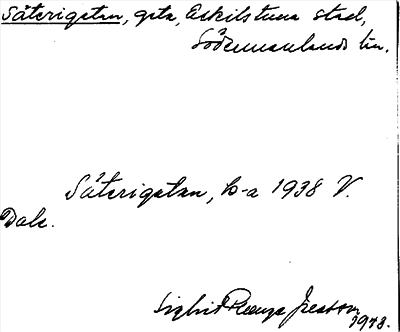 Säterigatan, gata, Eskilstuna stad,
Södermanlands län.
Säterigatan, b-a 1938 V.
Dale.
Sigrid
1948.